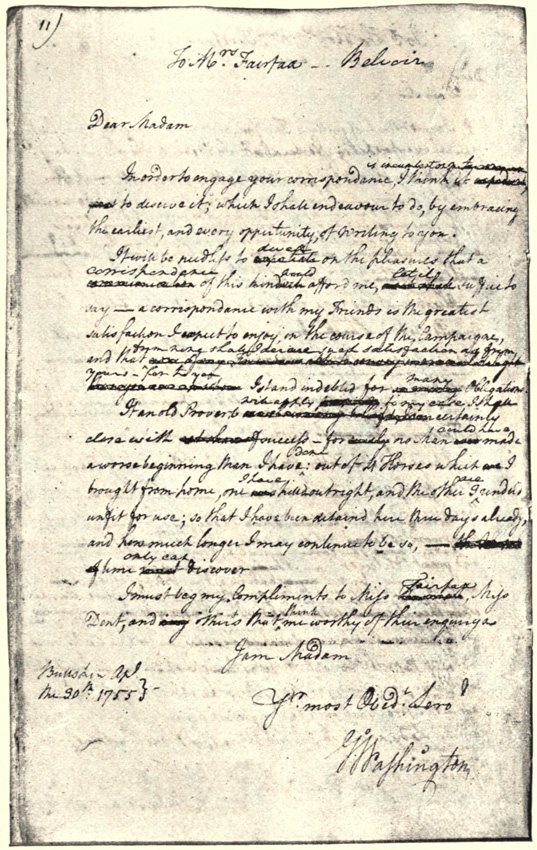 11)
To Mrs. Fairfax — Belvoir
Dear Madam
In order to engage your correspondance, I think it is
to deserve it; which I shall endeavour to do, by embracing
the earliest, and every oppertunity, of Writing to you.
It will be needless to dwell on the pleasures that a
correspondance of this kind would afford me, let it suffice to
say — a correspondance with my Friends is the greatest
satisfaction I expect to enjoy, in the course of the Campaigne,
and that from
yours — for to you
I stand indebted for many Obligations
If an old Proverb will apply to my case I shall
close with success — for no man could have made
a worse beginning than I have done: out of 4 Horses which I
brought from home, one I have killd outright, and the other 3 are renderd
unfit for use; so that I have been detaind here three days already,
and how much longer I may continue to be so, —
time only can discover
I must beg my Compliments to Miss Fairfax, Miss
Dent, and others that think me worthy of their enquirys
I am Madam
Yr. most Obedt. Servt.
Bullskin Apl.
the 30th. 1755
Go Washington